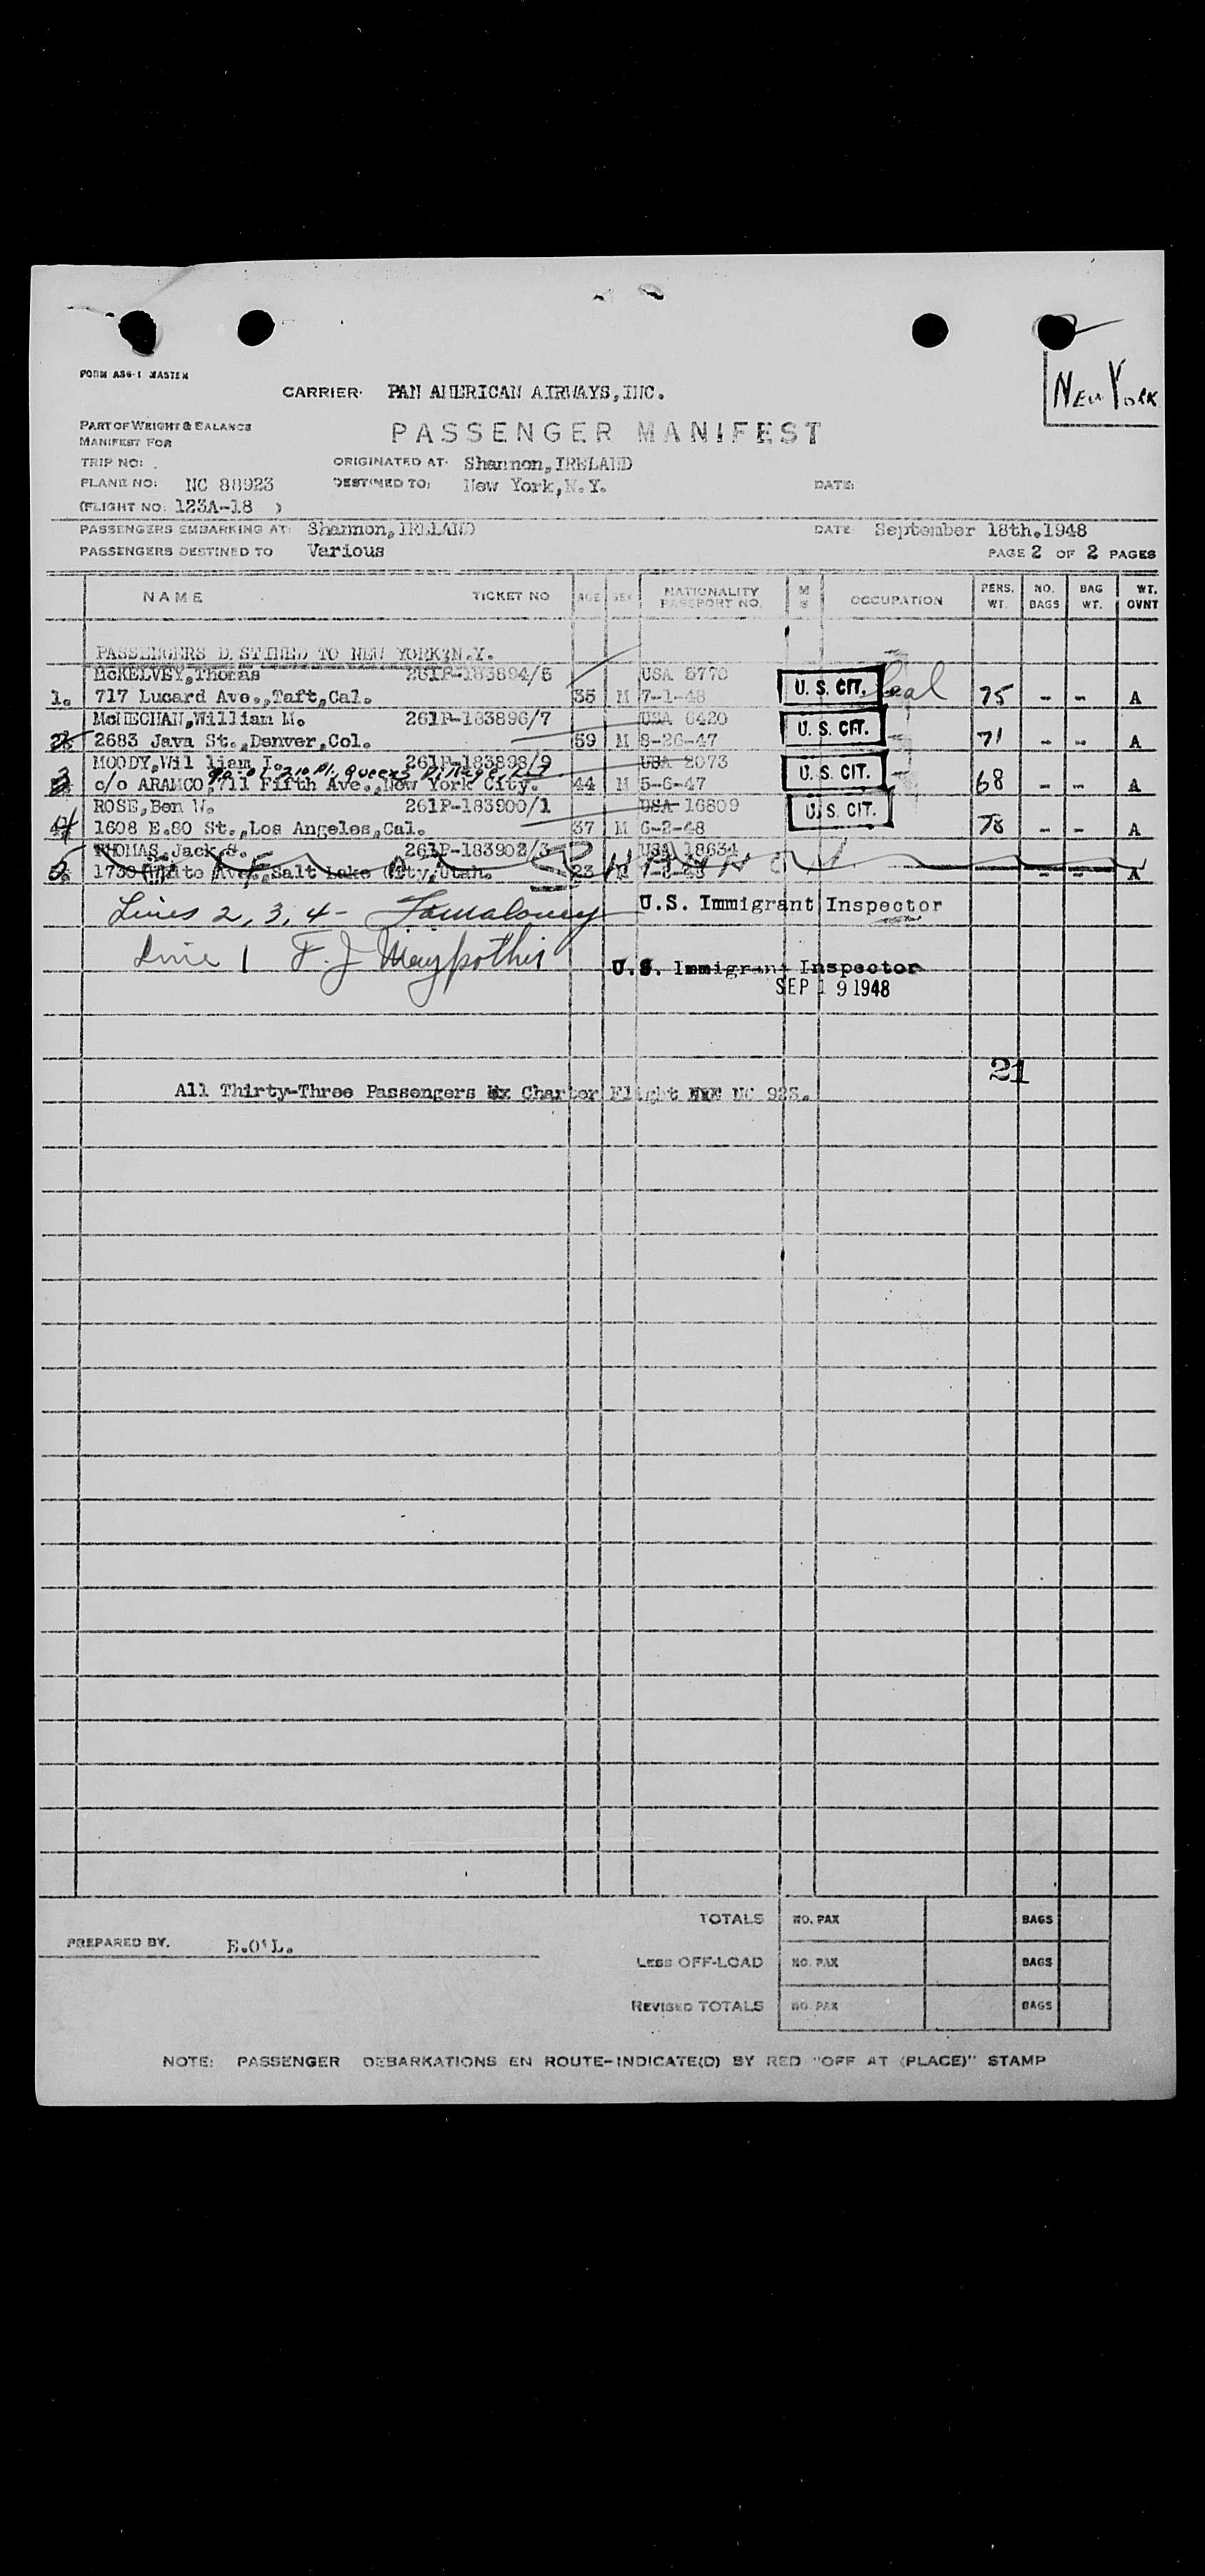 FORM ASG-1 MASTER
NEW YORK
CARRIER: PAN AMERICAN AIRWAYS, INC.
PART OF WEIGHT & BALANCE
MANIFEST FOR
PASSENGER MANIFEST
TRIP NO: .
ORIGINATED AT: Shannon, IRELAND
PLANE NO: NC 88923
DESTINED TO: New York, N.Y.
DATE:
(FLIGHT NO: 123A-18 )
PASSENGERS EMBARKING AT: Shannon, IRELAND
DATE September 18th. 1948
PASSENGERS DESTINED TO Various
PAGE 2 OF 2 PAGES
NAME TICKET NO AGE SEX NATIONALITY PASSPORT NO. M S OCCUPATION PERS. WT. NO. BAGS BAG WT. WT. OVNT
PASSENGERS D STINED TO NEW YORK, N.Y.
McKELVEY, Thomas 261P-183894/5 USA 5770
1. 717 Lucard Ave., Taft, Cal. 35 M 7-1-48 U. S. CIT. Seal 75 - - A
McMECHAN, William M. 261P-183896/7 USA 6420
2 2683 Java St., Denver, Col. 59 M 8-26-47 U. S. CIT. 71 - - A
MOODY, Wil liam I. 261P-183898/9 USA 2073
Queens Village
3 c/o ARAMCO, 711 Fifth Ave., New York City. 44 M 5-6-47 U. S. CIT. 68 - - A
ROSE, Ben W. 261P-183900/1 USA 16809
4 1608 E. 80 St., Los Angeles, Cal. 37 M 6-2-48 U. S. CIT. 78 - - A
THOMAS, Jack S. 261P-183902/3 USA 18634
5. 1730 Ave., Salt Lake City, Utah. 23 - - A
Lines 2, 3, 4 - U.S. Immigrant Inspector
Line 1 F. J.
U.S. Immigrant Inspector
SEP 19 1948
21
All Thirty-Three Passengers Ex Charter Flight NC 923.
TOTALS NO. PAX BAGS
PREPARED BY. E.O'L.
LESS OFF-LOAD NO. PAX BAGS
REVISED TOTALS NO. PAX BAGS
NOTE: PASSENGER DEBARKATIONS EN ROUTE-INDICATE(D) BY RED "OFF AT (PLACE)" STAMP